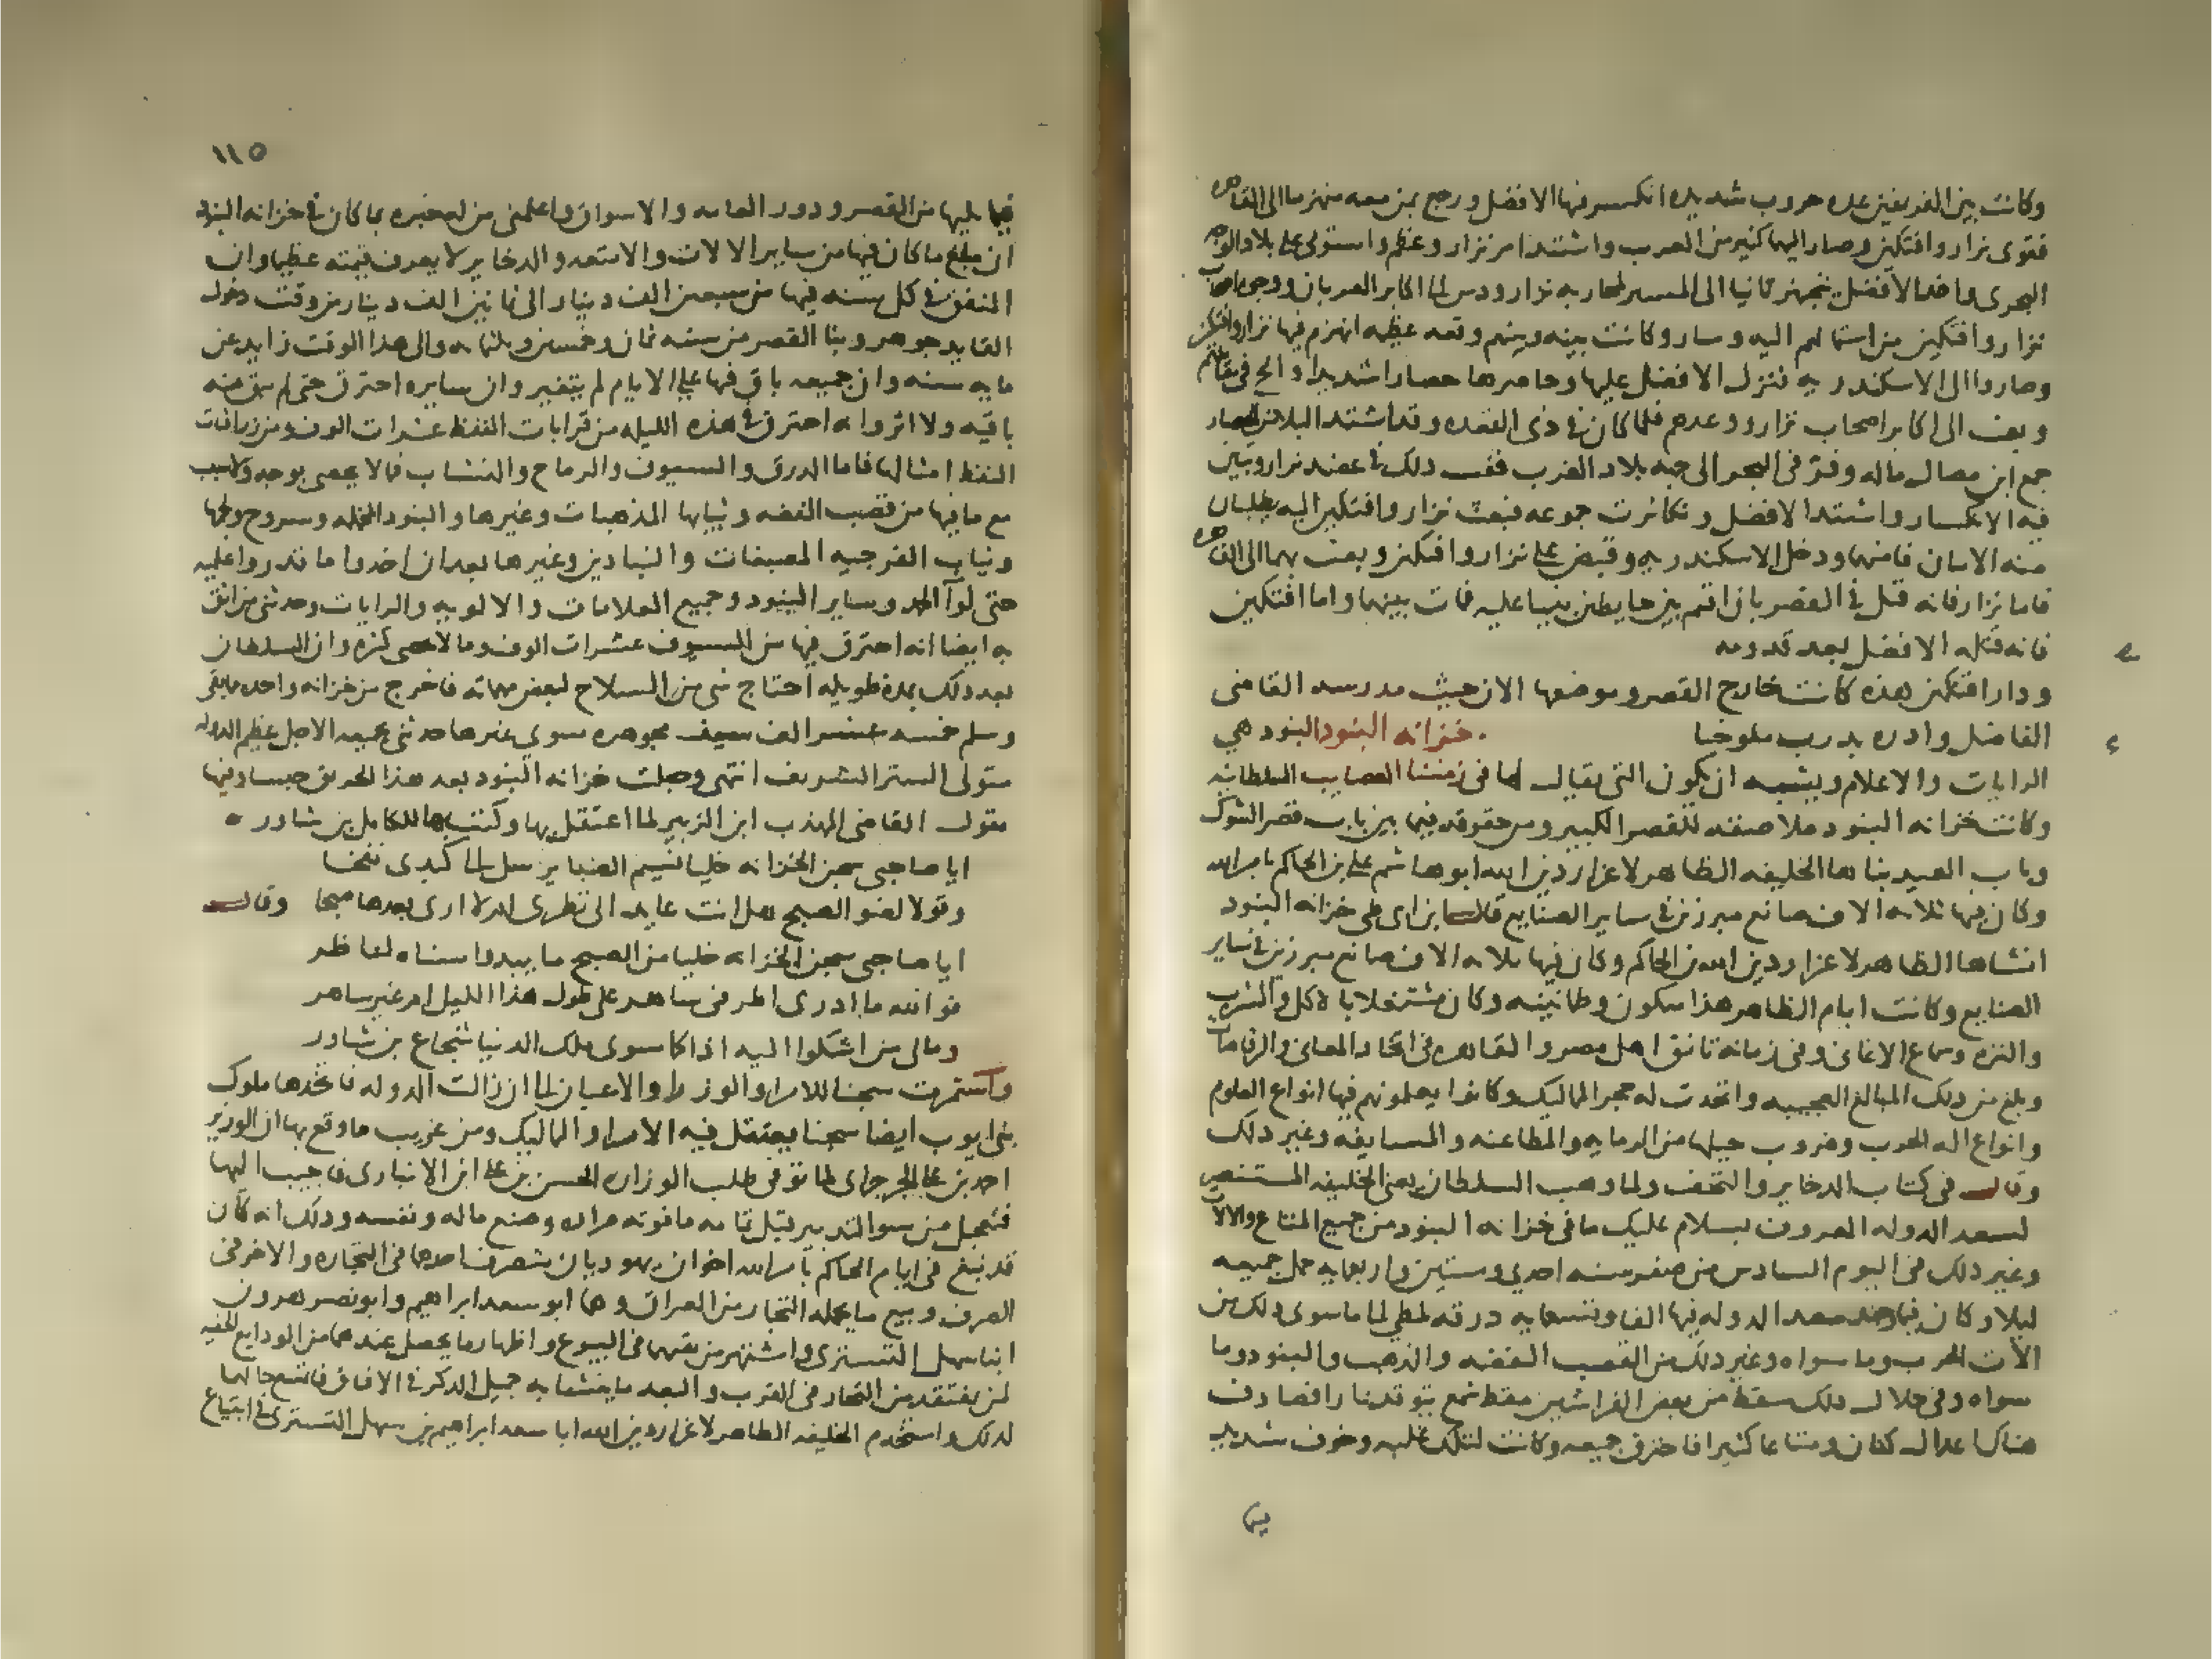 وكانت بين الفريقين عده حروب شديده انكسر فيها الافضل ورجع بمن معه منهزما الى القاهره
فقوى نزار وافتكين وصار اليهما كثير من العرب واشتد امر نزار وعظم واستولى على بلاد الوجه
البحرى واخذ الافضل يتجهز ثانيا الى المسير لمحاربه نزار ودس الى اكابر العربان ووجوه اصحاب
نزار وافتكين من استمالهم اليه وسار وكانت بينه وبينهم وقعه عظيمه انهزم فيها نزار وافتكين
وصاروا الى الاسكندريه فنزل الافضل عليها وحاصرها حصارا شديدا والح فى مقاتلتهم
وبعث الى اكابر اصحاب نزار ووعدهم فلما كان فى ذى القعده وقد اشتد البلا من الحصار
جمع ابن مصال ماله وفر فى البحر الى جهه بلاد الغرب ففت ذلك فى عضد نزار وتبين
فيه الانكسار واشتد الافضل وتكاثرت جموعه فبعث نزار وافتكين اليه يطلبان
منه الامان فامنهما ودخل الاسكندريه وقبض على نزار وافتكين وبعث بهما الى القاهره
فاما نزار فانه قتل فى القصر بان اقيم بين حايطين بنيا عليه فمات بينهما واما افتكين
فانه قتله الافضل بعد قدومه
ودار افتكين هذه كانت خارج القصر وموضعها الان حيث مدرسه القاضى
الفاضل وادره بدرب ملوخيا خزانه البنود البنود هى
الرايات والاعلام ويشبه ان يكون التى يقال لها فى زمننا العصايب السلطانيه
وكانت خزانه البنود ملاصقه للقصر الكبير ومن حقوقه فيما بين باب قصر الشوك
وباب العيد بناها الخليفه الظاهر لاعزاز دين الله ابو هاشم على بن الحاكم بامر الله
وكان فيها ثلاثه الاف صانع مبرزين فى ساير الصنايع قال ابن ابى طى خزانه البنود
انشاها الظاهر لاعزاز دين الله بن الحاكم وكان فيها ثلاثه الاف صانع مبرزين فى ساير
الصنايع وكانت ايام الظاهر هذا سكون وطمانينه وكان مشتغلا بالاكل والشرب
والنزه وسماع الاغانى وفى زمانه تانق اهل مصر والقاهره فى اتخاذ المغانى والرقاصات
وبلغ من ذلك المبالغ العجيبه واتخذت له حجر المماليك وكانوا يعلمونهم فيها انواع العلوم
وانواع اله الحرب وضروب حيلها من الرمايه والمطاعنه والمسايفه وغير ذلك
وقال فى كتاب الدخاير والتحف ولما وهب السلطان يعنى الخليفه المستنصر
لسعد الدوله المعروف بسلام عليك ما فى خزانه البنود من جميع المتاع والالات
وغير ذلك فى اليوم السادس من صفر سنه احدى وستين واربعمايه حمل جميعه
ليلا وكان فيما وجد سعد الدوله فيها الفا وتسعمايه درقه لمطى الى ما سوى ذلك من
الات الحرب وما سواه وغير ذلك من القصب الفضه والذهب والبنود وما
سواه وفى خلال ذلك سقط من بعض الفراشين مقط شمع يتوقد نارا فصادف
هناك اعدال كتان ومتاعا كثيرا فاحترق جميعه وكانت لتلك غلبه وخوف شديد
فيما
١١٥
فيما يليها من القصر ودور العامه والاسواق واعلمنى من له خبره بما كان فى خزانه البنود
ان مبلغ ما كان فيها من ساير الالات والامتعه والدخاير لا يعرف قيمته عظما وان
المنفق فى كل سنه فيها من سبعين الف دينار الى ثمانين الف دينار من وقت دخول
القايد جوهر وبنا القصر من سنه ثمان وخمسين وثلثمايه والى هذا الوقت زايد عن
مايه سنه وان جميعه باق فيها على الايام لم يتغير وان سايره احترق حتى لم يبق منه
باقيه ولا اثر وانه احترق فى هذه الليله من قرابات النفط عشرات الوف ومن زراقات
النفط امثالها فاما الدرق والسيوف والرماح والنشاب فما لا يحصى بوجه ولا سبب
مع ما فيها من قصب الفضه وثيابها المذهبات وغيرها والبنود المجمله وسروج ولجم
وثياب الفرجيه المصبغات والبنادين وغيرها بعد ان اخدوا ما قدروا عليه
حتى لوآ الحمد وساير البنود وجميع العلامات والالويه والرايات وحدثنى من اثق
به ايضا انه احترق فيها من السيوف عشرات الوف وما لا يحصى كثره وان السلطان
بعد ذلك بمدة طويله احتاج شى من السلاح لبعض مهماته فاخرج من خزانه واحده مما بقى
وسلم خمسه عشر الف سيف مجوهره سوى غيرها حدثنى بجميعه الاجل عظيم الدوله
متولى الستر الشريف انتهى وجعلت خزانه البنود بعد هذا الحريق حبسا وفيها
يقول القاضى المهذب ابن الزبير لما اعتقل بها وكتب بها للكامل بن شاور
ايا صاحبى سجن الخزانه خليا نسيم الصبا يرسل الى كبدى نفحا
وقولا لضو الصبح هل انت عايد الى نظرى ام لا ارى بعدها صبحا وقال
ايا صاحبى سجن الخزانه خليا من الصبح ما يبدوا سناه لناظر
فوالله ما ادرى اطرفى ساهر على طول هذا الليل ام غير ساهر
ومالى من اشكوا اليه اذاكما سوى ملك الدنيا شجاع بن شاور
واستمرت سجنا للامرا والوزرا والاعيان الى ان زالت الدوله فاتخدها ملوك
بنى ايوب ايضا سجنا يعتقل فيه الامرا والمماليك ومن غريب ما وقع بها ان الوزير
احمد بن على الجرجراى لما توفى طلب الوزاره الحسن بن على ابن الانبارى فاجيب اليها
فتعجل من سو التدبير قبل تمامه ما فوته مراده وضيع ماله ونفسه وذلك انه كان
قد نبغ فى ايام الحاكم بامر الله اخوان يهوديان يتصرف احدهما فى التجاره والاخر فى
الصرف وبيع ما يحمله التجار من العراق وهما ابو سعد ابراهيم وابو نصر هرون
ابنا سهل التسترى واشتهر من بيتهما فى البيوع واظهار ما يحصل عندهما من الودايع الخفيه
لمن يفتقد من التجار فى القرب والبعد ما ينشا به جميل الذكر فى الافاق فاتسع حالهما
لذلك واستخدم الخليفه الظاهر لاعزاز دين الله ابا سعد ابراهيم بن سهل التسترى فى ابتياع